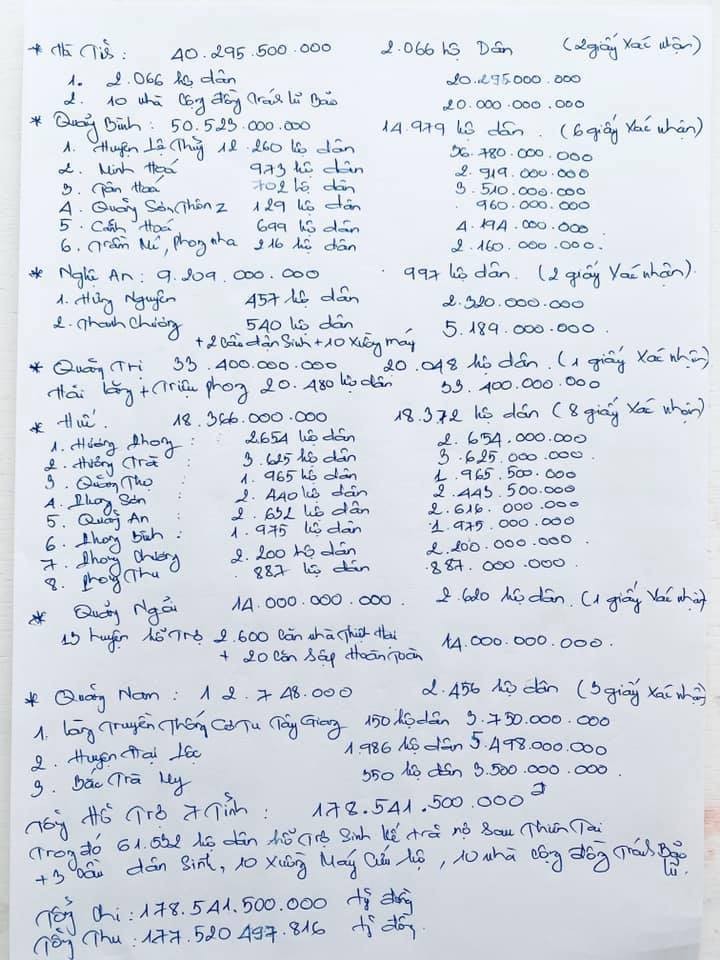 * Hà Tĩnh : 40.295.500.000 2.066 hộ Dân (2 giấy Xác nhận)
1. 2.066 hộ dân 20.295.000.000
2. 10 nhà Cộng đồng Tránh lũ Bảo 20.000.000.000
* Quảng Bình : 50.523.000.000 14.979 hộ dân . (6 giấy Xác nhận)
1. Huyện Lệ Thủy 12.260 hộ dân 36.780.000.000
2. Minh Hoá 973 hộ dân 2.919.000.000
3. Tân Hoá 702 hộ dân 3.510.000.000
4. Quảng Sơn, Thôn 2 129 hộ dân 960.000.000
5. Cảnh Hoá 699 hộ dân 4.194.000.000
6. Trầm Mé, phong nha 216 hộ dân 2.160.000.000.
* Nghệ An : 9.209.000.000 997 hộ dân. (2 giấy Xác nhận).
1. Hưng Nguyên 457 hộ dân 2.320.000.000
2. Thanh Chương 540 hộ dân 5.189.000.000.
+ 2 Cầu dân Sinh + 10 xuồng máy
* Quảng Trị 33.400.000.000 20.048 hộ dân. (1 giấy Xác nhận)
Hải lăng + Triệu phong 20.480 hộ dân 33.400.000.000
* Huế . 18.366.000.000 18.372 hộ dân (8 giấy Xác nhận)
1. Hương Phong : 2654 hộ dân 2.654.000.000
2. Hương Trà : 3.625 hộ dân 3.625.000.000
3. Quảng Thọ 1.965 hộ dân 1.965.500.000
4. Phong Sơn : 2.440 hộ dân 2.443.500.000
5. Quảng An : 2.632 hộ dân 2.616.000.000
6. Phong Bình : 1.975 hộ dân 1.975.000.000
7. Phong Chương 2.200 hộ dân 2.200.000.000.
8. Phong Thu 887 hộ dân 887.000.000.
* Quảng Ngãi 14.000.000.000. 2.620 hộ dân. (1 giấy Xác nhận)
13 huyện hỗ Trợ 2.600 Căn nhà Thiệt Hại 14.000.000.000.
+ 20 Căn Sập Hoàn Toàn
* Quảng Nam : 12.748.000 2.456 hộ dân (3 giấy Xác nhận)
1. làng Truyền Thống Cơ Tu Tây Giang 150 hộ dân 3.750.000.000
2. Huyện Đại Lộc 1.986 hộ dân 5.498.000.000
3. Bắc Trà My 350 hộ dân 3.500.000.000.
Tổng Hỗ Trợ 7 Tỉnh : 178.541.500.000 đ
Trong đó 61.532 hộ dân hỗ Trợ Sinh kế trả nợ Sau Thiên Tai
+ 3 Cầu dân Sinh, 10 Xuồng Máy Cứu hộ, 10 nhà Cộng đồng Tránh Bảo
lũ.
Tổng Chi : 178.541.500.000 tỷ đồng
Tổng Thu : 177.520.497.816 tỷ đồng.